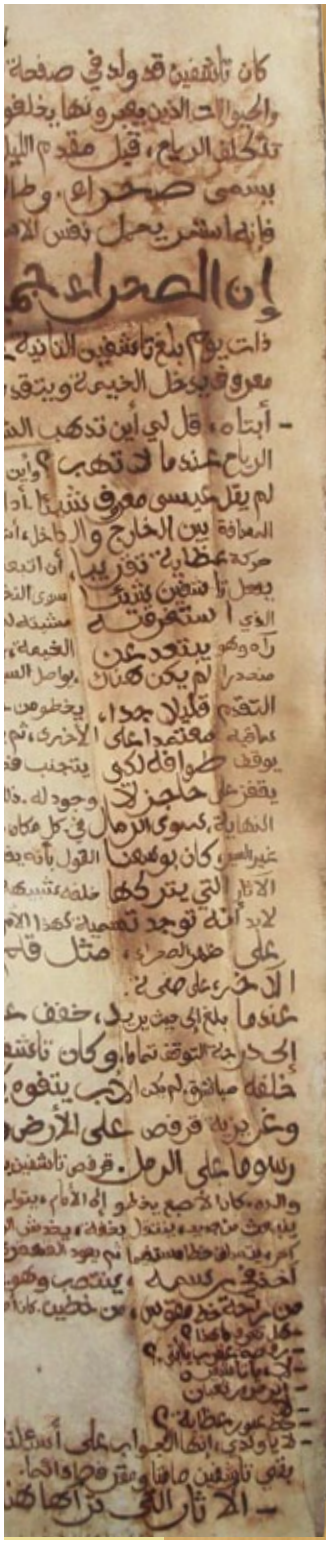 كان تاشفين قد ولد في صفحة
والحيوانات الذين يعبرونها يخلفو
تتكلف الرياح، قبل مقدم الليل
يسمى صحراء. وطا
فإنه استمر يحمل نفس الاس
إن الصحراء جم
ذات يوم بلغ تاشفين الثانية
معروف يدخل الخيمة ويتقد
- أبتاه، قل لي أين تذهب الش
الرياح عندما لا تهب؟ وأين
لم يقل عيسى معروف شيئا. أدا
المسافة بين الخارج والداخل، أش
حركة عظاية تقريبا، أن اتبعه
يفعل تاشفين شيئا سوى النظ
الذي استغرقته مشيته
رآه وهو يبتعد عن الخيمة،
منحدرا لم يكن هناك. يواصل الس
التقدم قليلا جدا، يخطو من
ساقيه معتمدا على الأخرى، ثم
يوقف طوافه لكي يتجنب
يقفز على حاجز لا وجود له.
النهاية، سوى الرمال في كل مكان
غير السير، كان بوسعنا القول بأنه
الآثار التي يتركها خلفه شبيهة
لابد أنه توجد تسمية لهذا الأم
على ظهر الصحراء، مثل قلم
الآخر، على صفحة.
عندما بلغ إلى حيث يريد، خفف
إلى درجة التوقف تماما. وكان تاشف
خلفه مباشرة. لم يكن الأب يتفوه
وغريزية قرفص على الأرض و
رسوما على الرمل. قرفص تاشفين
والده. كان الأصبع يخطو إلى الأمام، يتوا
ينبعث من جديد، ينتقل بخفة، يخدش
خطا مستقيما ثم يعود
أخذ في رسمه، ينتصب وهو
من خطين. كان
- هل تعود ؟
- رقصة عقرب يا أبي؟
- لا، يا تاشفين
- إذن مرور ثعبان
- لا
- عبور عظاية؟
- لا يا ولدي، إنها الجواب على أسئلت
بقي تاشفين صامتا وهو
- الآثار التي تراها هن